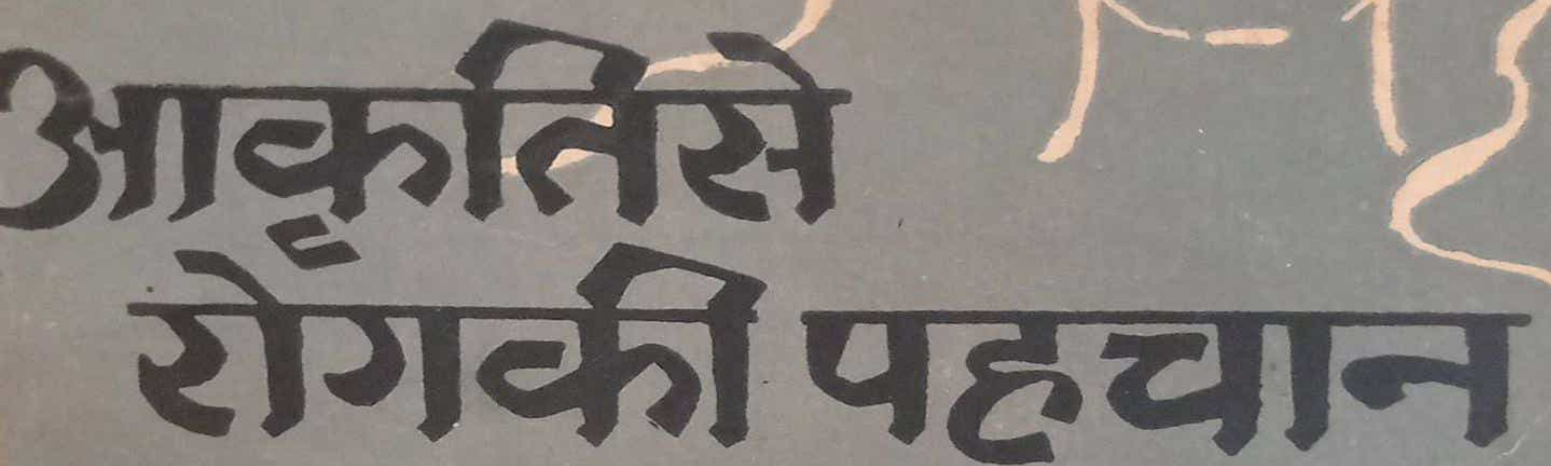 आकृतिसे
रोगकी पहचान